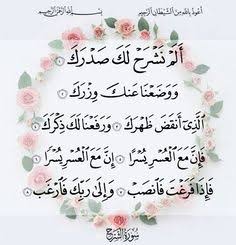 أعوذ بالله من الشيطان الرجيم
بسم الله الرحمن الرحيم
أَلَمْ نَشْرَحْ لَكَ صَدْرَكَ ١
وَوَضَعْنَا عَنكَ وِزْرَكَ ٢
الَّذِي أَنقَضَ ظَهْرَكَ ٣ وَرَفَعْنَا لَكَ ذِكْرَكَ ٤
فَإِنَّ مَعَ الْعُسْرِ يُسْرًا ٥ إِنَّ مَعَ الْعُسْرِ يُسْرًا ٦
فَإِذَا فَرَغْتَ فَانصَبْ ٧ وَإِلَىٰ رَبِّكَ فَارْغَب ٨
سورة الشرح